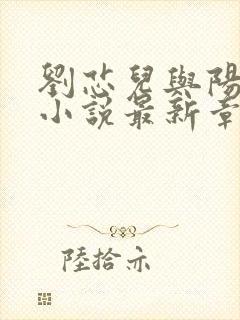 劉芯兒與陽
小說最新章
陸拾亦